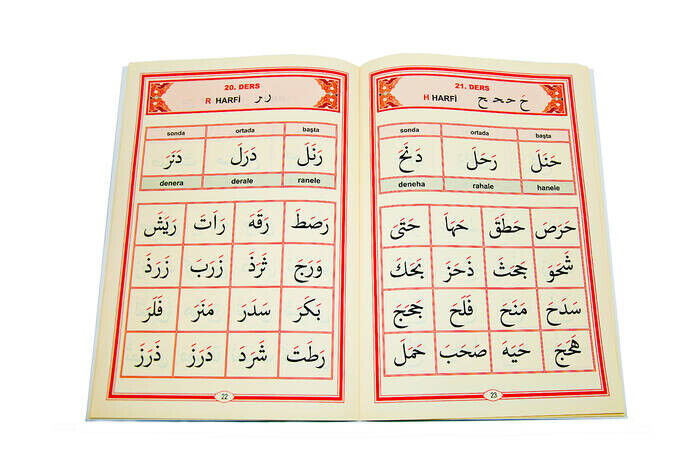 20. DERS
R HARFİ ر ر
sonda ortada başta
دَنَرَ دَرَلَ رَنَلَ
denera derale ranele
رَصَطَ رَقَهَ رَاتَ رَيَشَ
وَرَجَ ثَرَذَ زَرَبَ زَرَذَ
بَكَرَ سَدَرَ مَنَرَ فَلَرَ
رَطَتَ شَرَدَ دَرَزَ ذَرَزَ
22
21. DERS
H HARFİ حَ ححح ح
sonda ortada başta
دَنَحَ رَحَلَ حَنَلَ
deneha rahale hanele
حَرَصَ حَطَقَ حَهَا حَتَى
شَحَوَ جَحَثَ ذَحَزَ بَحَكَ
سَدَحَ مَنَحَ فَلَحَ جَحَجَ
هَحَجَ حَيَهَ صَحَبَ حَمَلَ
23